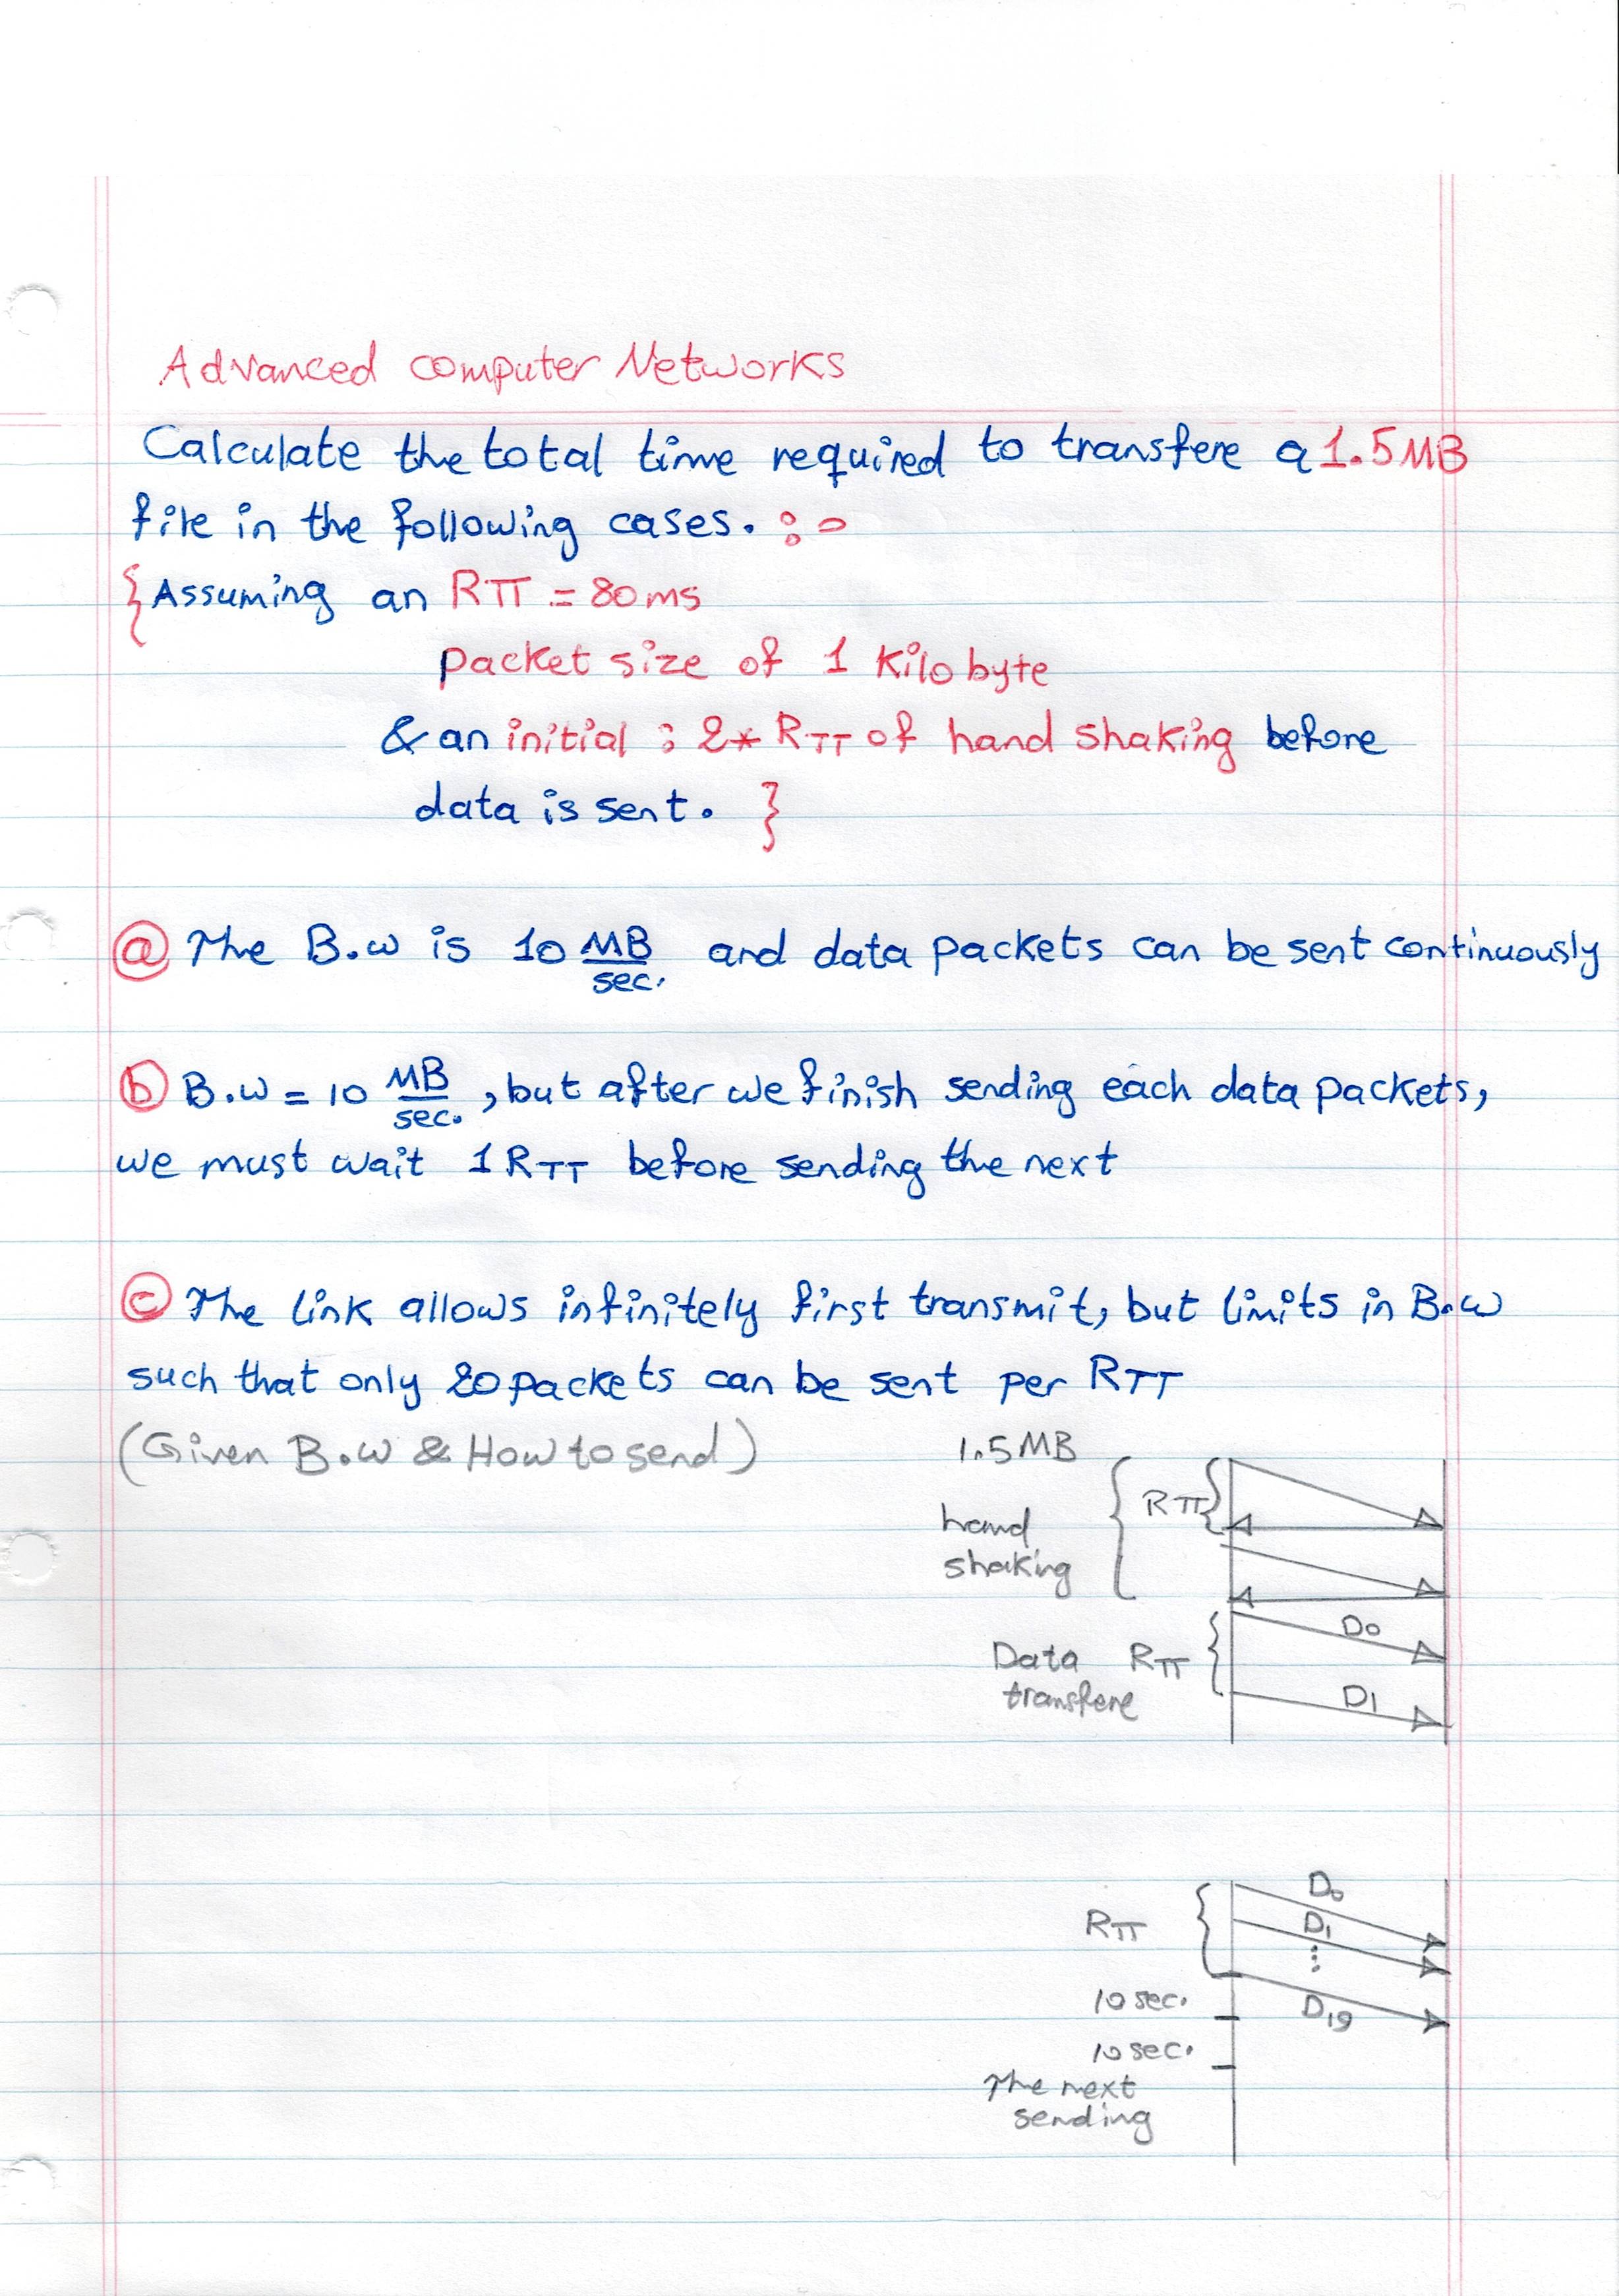 Advanced computer Networks
Calculate the total time required to transfere a 1.5MB
file in the following cases. :-
{Assuming an RTT = 80ms
packet size of 1 Kilo byte
& an initial : 2* RTT of hand shaking before
data is sent. }
(a) The B.w is 10 MB/sec. and data packets can be sent continuously
(b) B.w = 10 MB/sec. , but after we finish sending each data packets,
we must wait 1 RTT before sending the next
(c) The link allows infinitely first transmit, but limits in B.w
such that only 20 packets can be sent per RTT
(Given B.w & How to send)
1.5MB
RTT
hand
shaking
D0
Data RTT
transfere
D1
D0
RTT
D1
⋮
10 sec.
D19
10 sec.
The next
sending